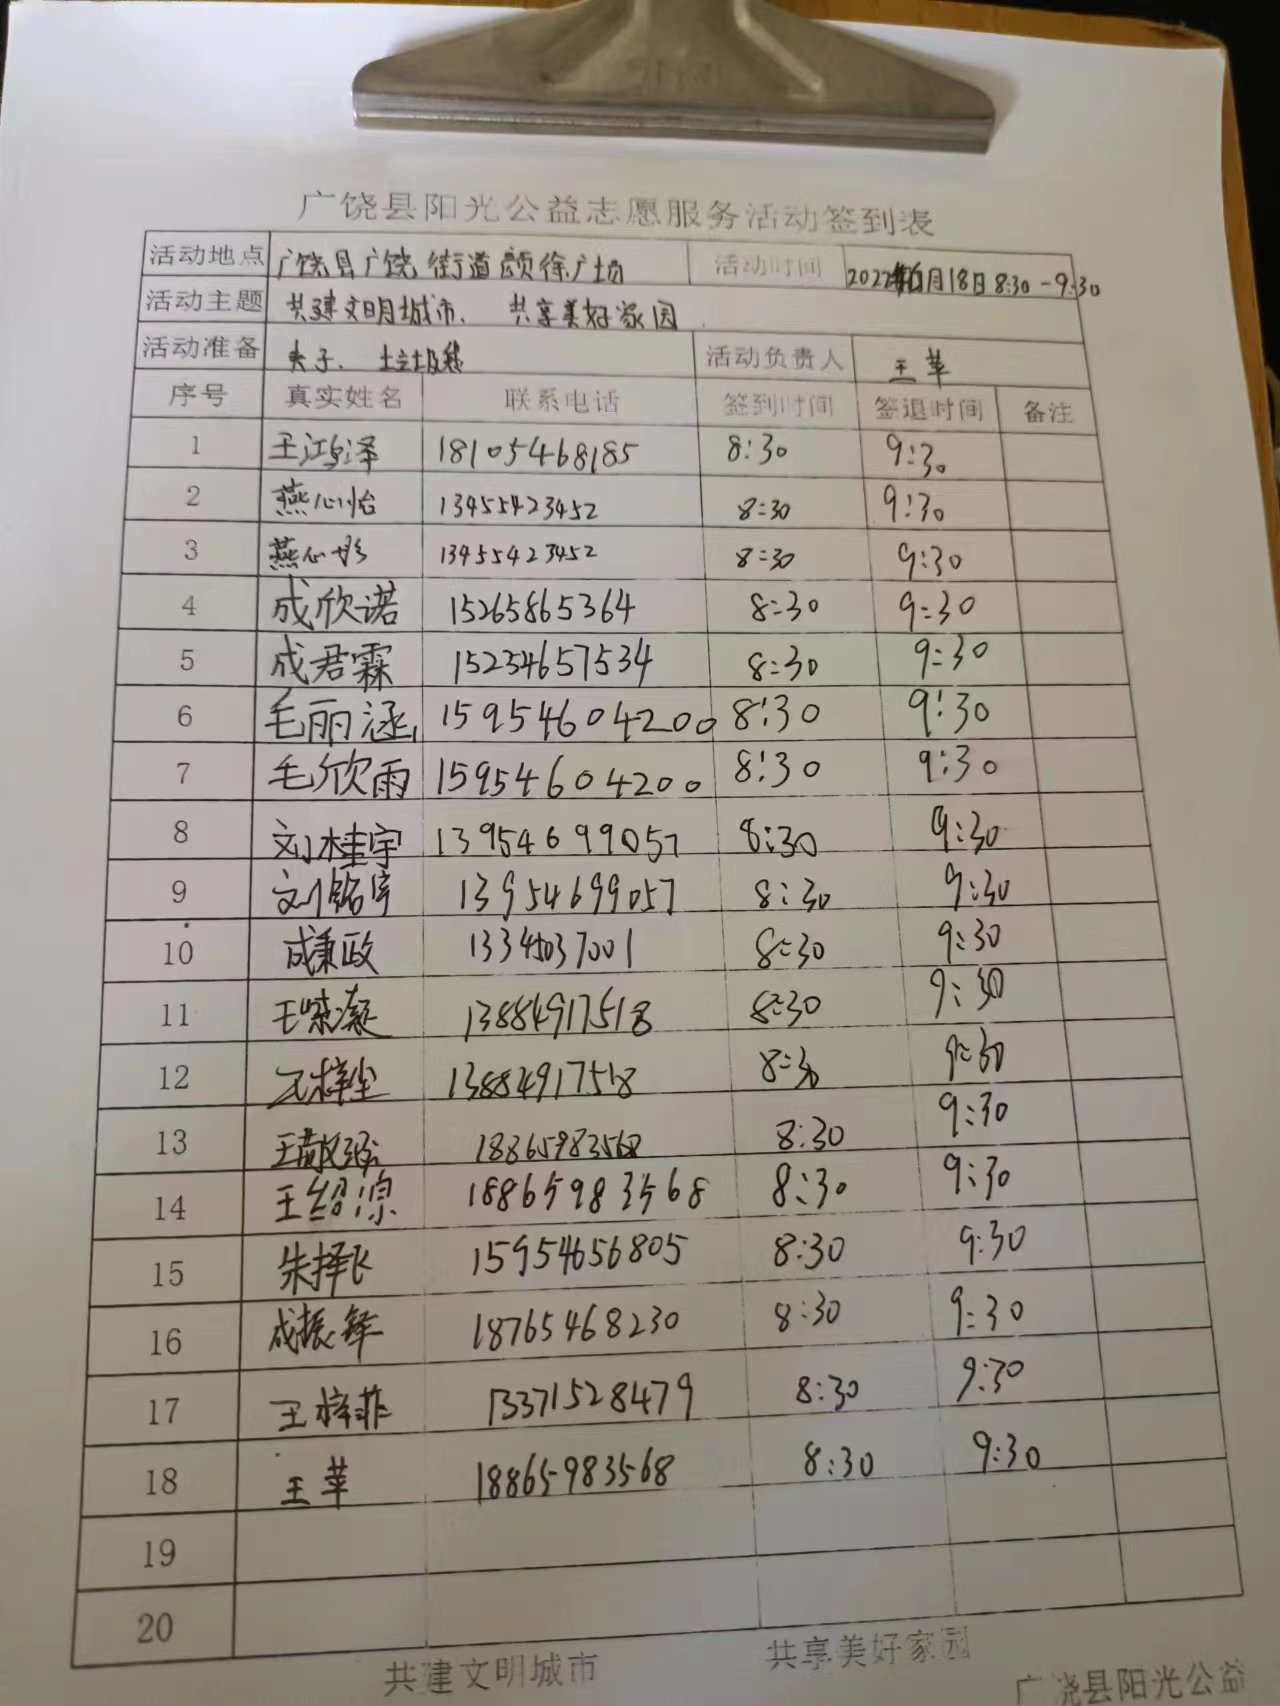 广饶县阳光公益志愿服务活动签到表
活动地点 广饶县广饶街道颜徐广场 活动时间 2022年 月18日8:30-9:30
活动主题 共建文明城市、 共享美好家园
活动准备 夹子、垃圾袋 活动负责人 王苹
序号 真实姓名 联系电话 签到时间 签退时间 备注
1 王鸿泽 18105468185 8:30 9:30
2 燕心怡 13455423452 8:30 9:30
3 燕心彤 13455423452 8:30 9:30
4 成欣诺 15265865364 8:30 9:30
5 成君霖 15254657534 8:30 9:30
6 毛丽涵 15954604200 8:30 9:30
7 毛欣雨 15954604200 8:30 9:30
8 刘桂宇 13954699057 8:30 9:30
9 刘铭宇 13954699057 8:30 9:30
10 成秉政 8:30 9:30
11 13884917518 8:30 9:30
12 13884917518 8:30 9:30
13 18865983568 8:30 9:30
14 王绍凉 18865983568 8:30 9:30
15 朱择飞 15954656805 8:30 9:30
16 成振铎 18765468230 8:30 9:30
17 王梓菲 13371528479 8:30 9:30
18 王苹 18865983568 8:30 9:30
19
20
共建文明城市 共享美好家园
广饶县阳光公益